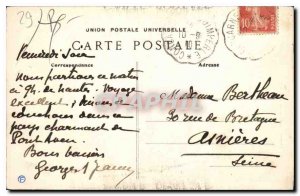 29
UNION POSTALE UNIVERSELLE
CARTE POSTALE
Correspondance
Adresse
Vendredi soir
nous partions ce matin
à 9h. de Nantes. Voyage
excellent, nous
couchons dans ce
pays charmant de
Pont Aven.
Bons baisers
Georges
Madame Bertheau
30 rue de Bretagne
Asnières
Seine
10